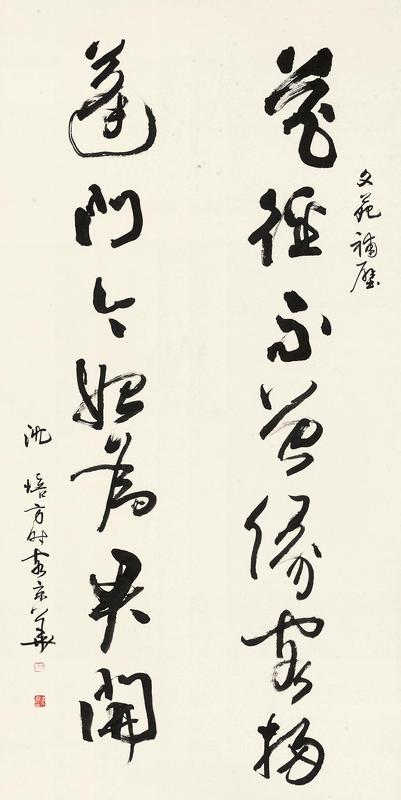 文苑補壁
花徑不曾緣客掃
蓬門今始為君開
沈培方時客京華